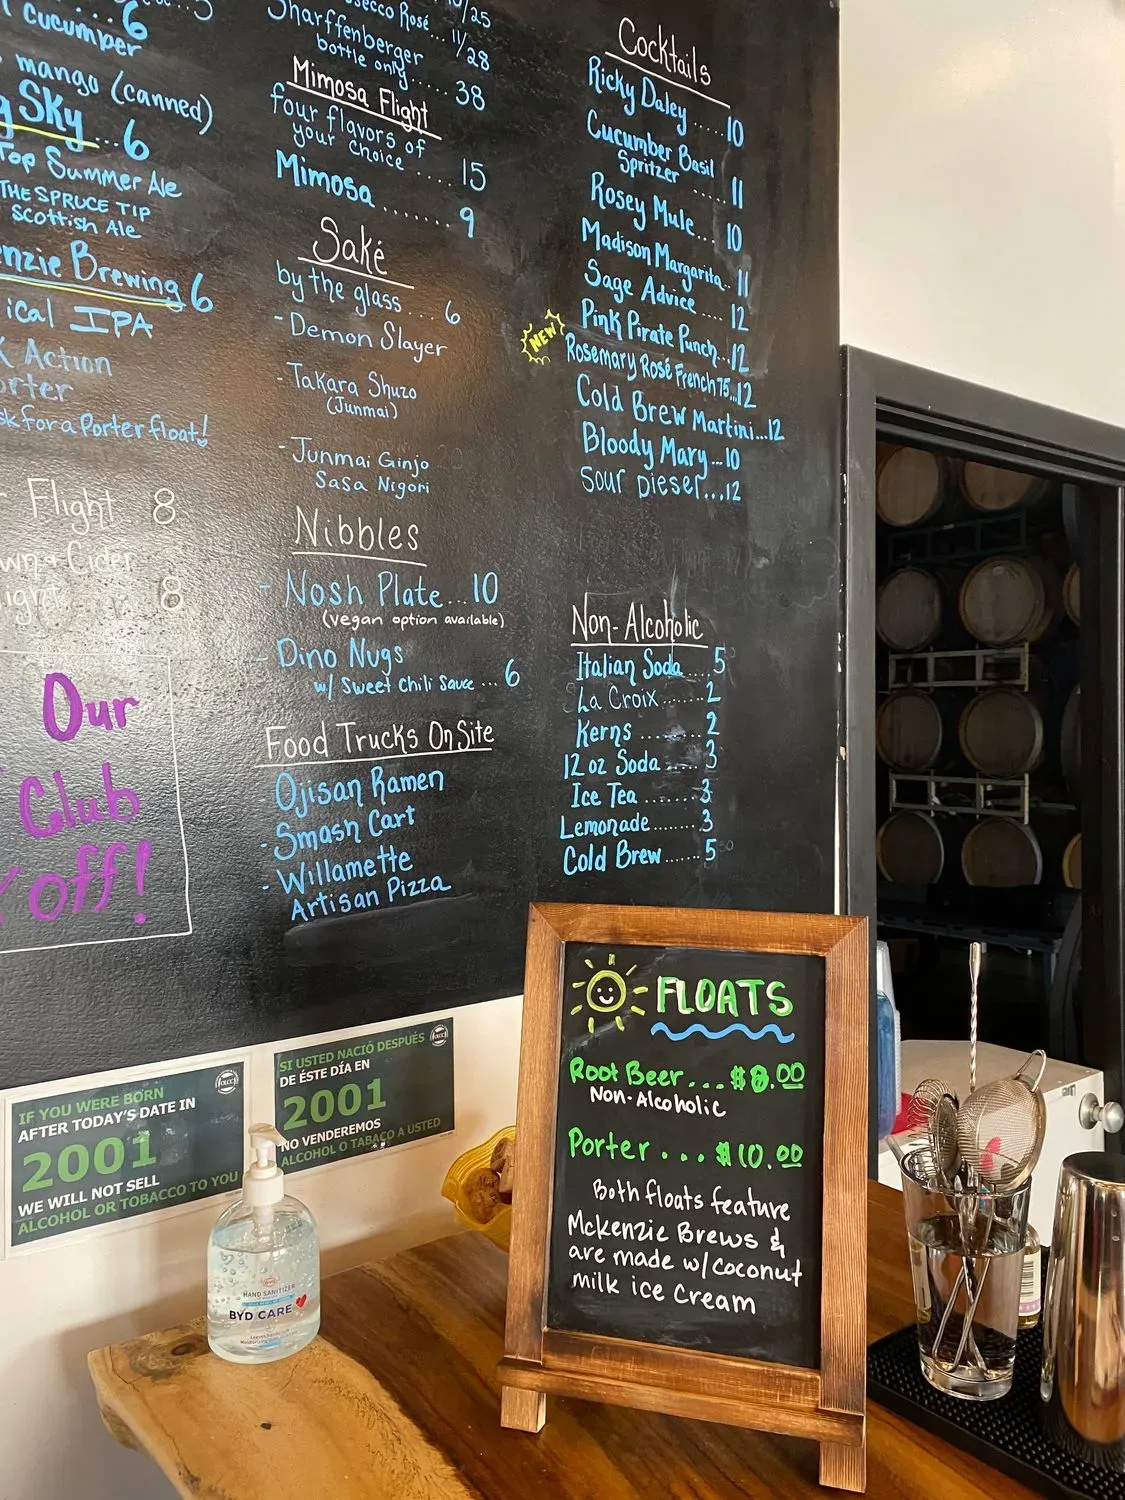 6
cucumber
mango (canned)
Sky...6
Top Summer Ale
THE SPRUCE TIP
Scottish Ale
Brewing 6
IPA
Action
Porter float!
Flight...8
Cider
8
Our
Club
off!
Rosé... 11/28
Sharffenberger
bottle only.... 38
Mimosa Flight
four flavors of
your choice ..... 15
Mimosa ....... 9
Saké
by the glass... 6
- Demon Slayer
- Takara Shuzo
(Junmai)
- Junmai Ginjo
Sasa Nigori
Nibbles
- Nosh Plate...10
(vegan option available)
- Dino Nugs
w/ Sweet Chili Sauce ... 6
Food Trucks On Site
- Ojisan Ramen
- Smash Cart
- Willamette
Artisan Pizza
Cocktails
Ricky Daley.....10
Cucumber Basil
Spritzer ..... 11
Rosey Mule... 10
Madison Margarita.. 11
Sage Advice... 12
Pink Pirate Punch...12
NEW
Rosemary Rosé French 75...12
Cold Brew Martini...12
Bloody Mary...10
Sour Diesel...12
Non-Alcoholic
Italian Soda....5
La Croix.......2
Kerns ........ 2
12 oz Soda..... 3
Ice Tea ....... 3
Lemonade....... 3
Cold Brew...... 5
IF YOU WERE BORN
AFTER TODAY'S DATE IN
2001
WE WILL NOT SELL
ALCOHOL OR TOBACCO TO YOU
OLCC
SI USTED NACIÓ DESPUÉS
DE ÉSTE DÍA EN
2001
NO VENDEREMOS
ALCOHOL O TABACO A USTED
OLCC
HAND SANITIZER
BYD CARE
FLOATS
Root Beer...$8.00
Non-Alcoholic
Porter ... $10.00
Both floats feature
Mckenzie Brews &
are made w/coconut
milk ice cream